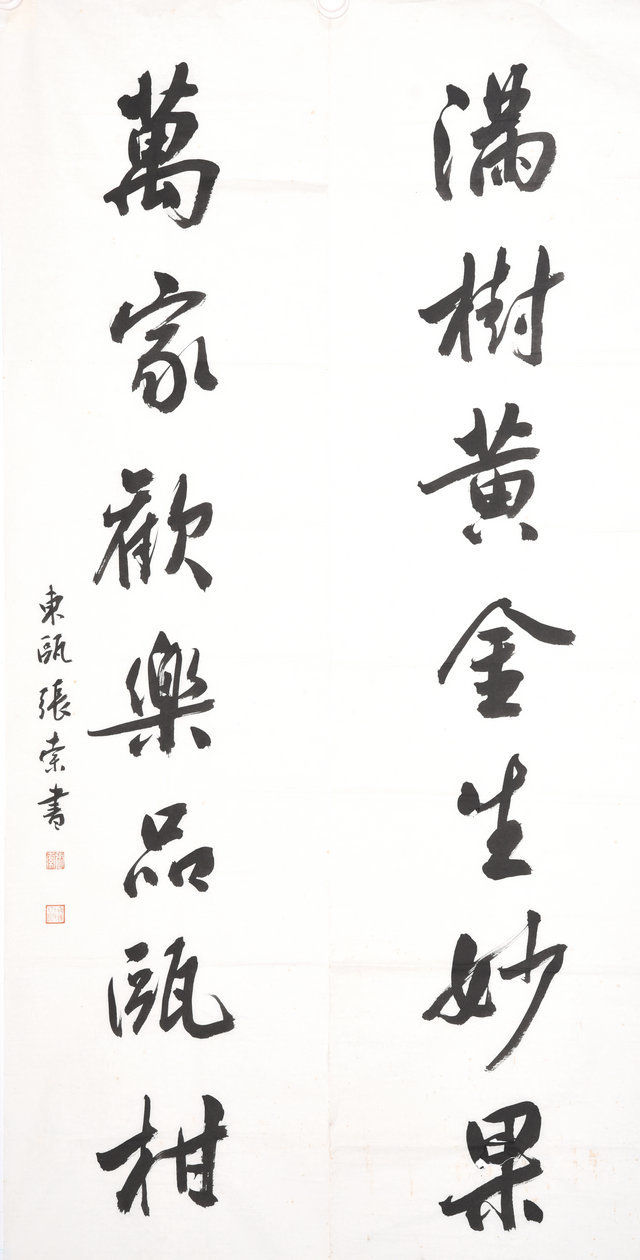 满樹黄金生妙果
萬家歡樂品甌柑
東甌張索書